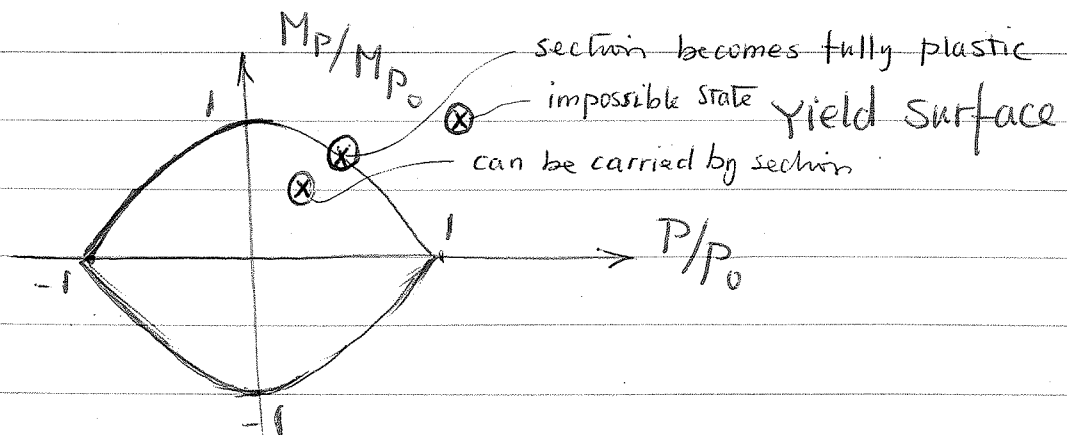 Mp/Mp₀
section becomes fully plastic
1
impossible state
Yield Surface
can be carried by section
1
P/P₀
-1
-1